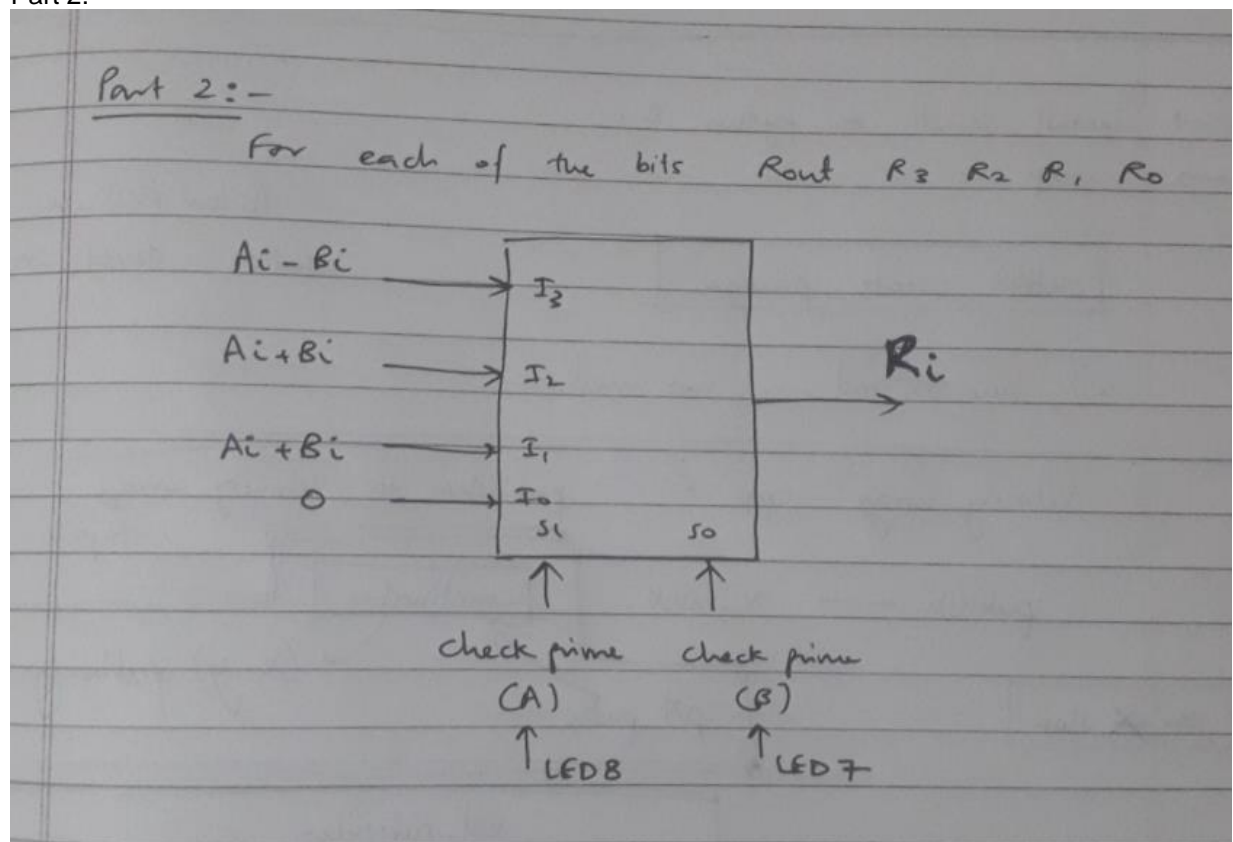 Part 2:
Part 2:-
For each of the bits Rout R3 R2 R1 R0
Ai - Bi
I3
Ai + Bi
I2
Ri
Ai + Bi
I1
0
I0
S1 S0
check prime check prime
(A) (B)
LED8 LED7